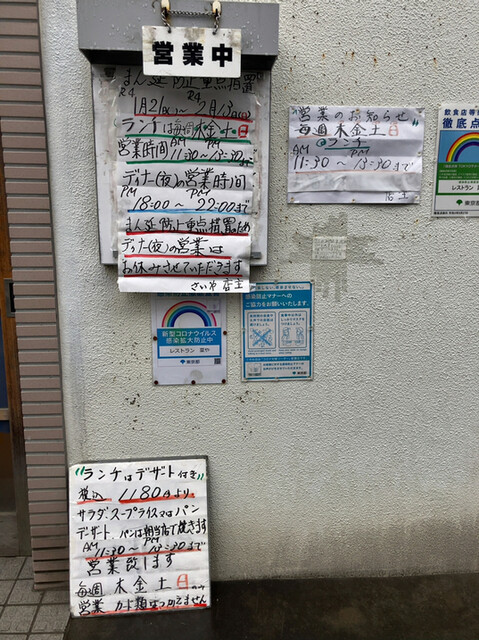 営業中
まん延防止重点措置
R4 R4
1月21(金)〜2月13(日)
ランチは毎週木金土日
営業時間 AM 11:30〜PM 13:30まで
ディナ(夜)の営業時間
PM PM
18:00〜22:00まで
まん延防止重点措置のため
ディナ(夜)の営業は
お休みさせていただきます
さいや 店主
営業のお知らせ
毎週木金土日
ランチ
AM PM
11:30〜13:30まで
店主
飲食店等
徹底点
レストラン
東京都
新型コロナウイルス
感染拡大防止中
レストラン 菜や
東京都
感染防止マナーへの
ご協力をお願いいたします。
東京都
"ランチはデザート付き"
税込 1180円より
サラダスープライスマタはパン
デザート、パンは都当店で焼きます
AM PM
11:30〜13:30まで
営業致します
毎週 木金土日
営業 カード類はつかえません